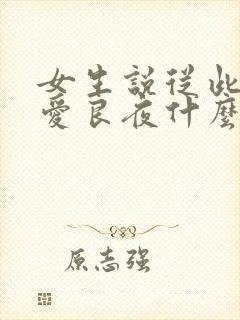 女生說从此
愛良夜什麼
原志强